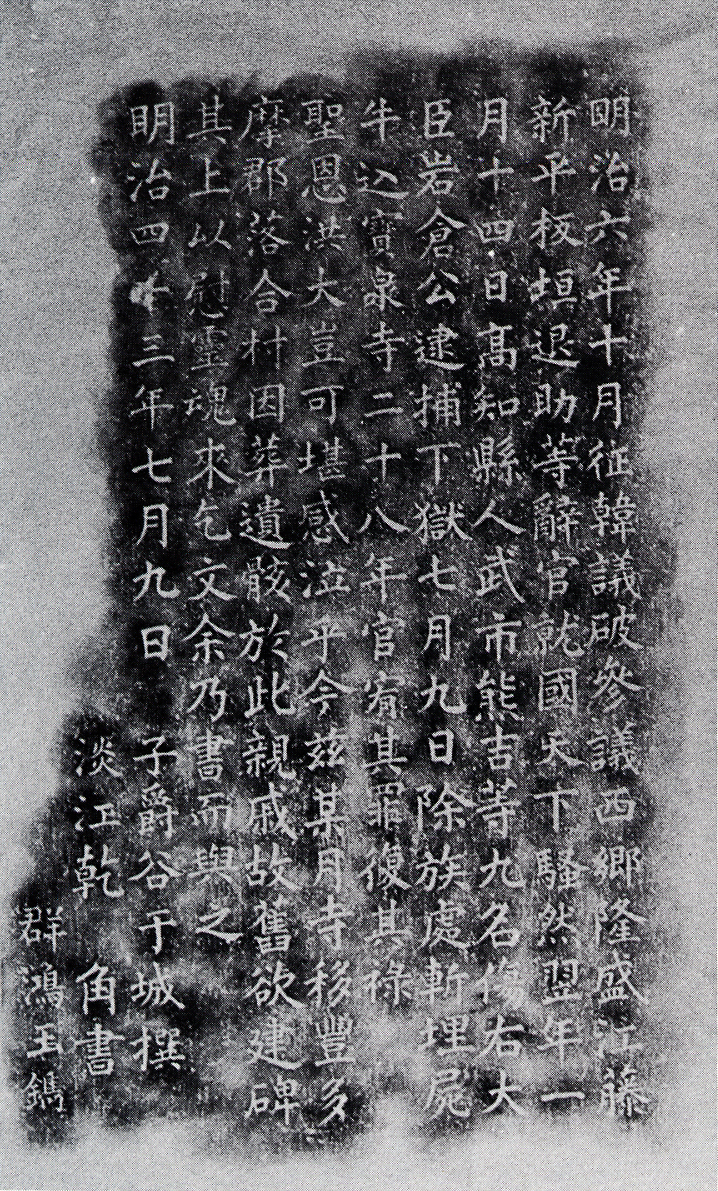 明治六年十月征韓議破參議西郷隆盛江藤
新平板垣退助等辭官就國天下騷然翌年一
月十四日高知縣人武市熊吉等九名傷右大
臣岩倉公逮捕下獄七月九日除族處斬埋屍
牛込寶泉寺二十八年官宥其罪復其祿
聖恩洪大豈可堪感泣乎今茲某月寺移豐多
摩郡落合村因葬遺骸於此親戚故舊欲建碑
其上以慰靈魂來乞文余乃書而與之
明治四十三年七月九日 子爵谷干城撰
淡江乾 角書
群鴻玉鐫